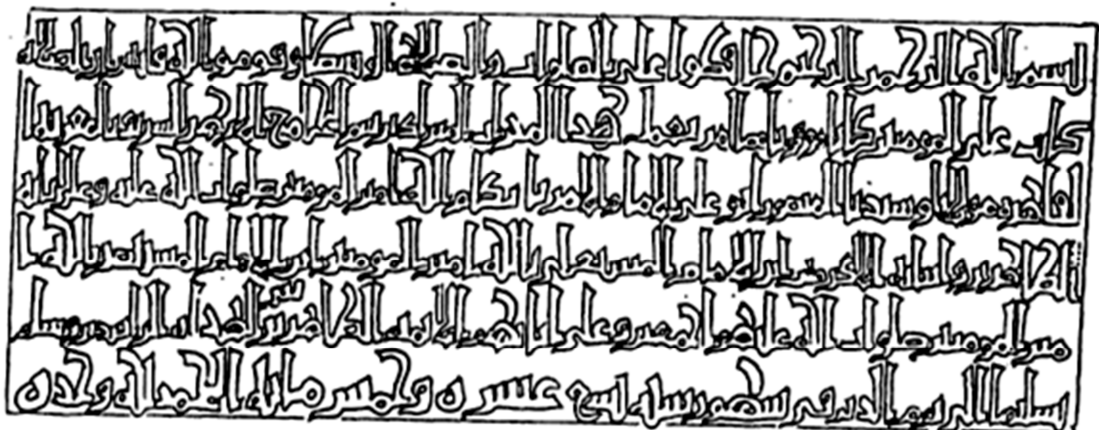 بسم الله الرحمن الرحيم حافظوا على الصلوات والصلاة الوسطى وقوموا لله قانتين ان الصلاة
كانت على المؤمنين كتابا موقوتا مما امر بعمل هذا المحراب المبارك برسم الجامع الازهر الشريف بالمعزية
القاهرة مولانا وسيدنا المنصور ابو على الامام الامر باحكام الله امير المومنين صلوات الله عليه وعلى ابائه
الطاهرين وابنائه الاكرمين ابن الامام المستعلى بالله امير المومنين ابن الامام المستنصر بالله ا
مير المومنين صلوات الله عليهم اجمعين وعلى ابائهم الائمة الطاهرين بنى الهداة الراشدين وسلم
تسليما الى يوم الدين في شهور سنة تسع عشرة وخمس مائة الحمد لله وحده